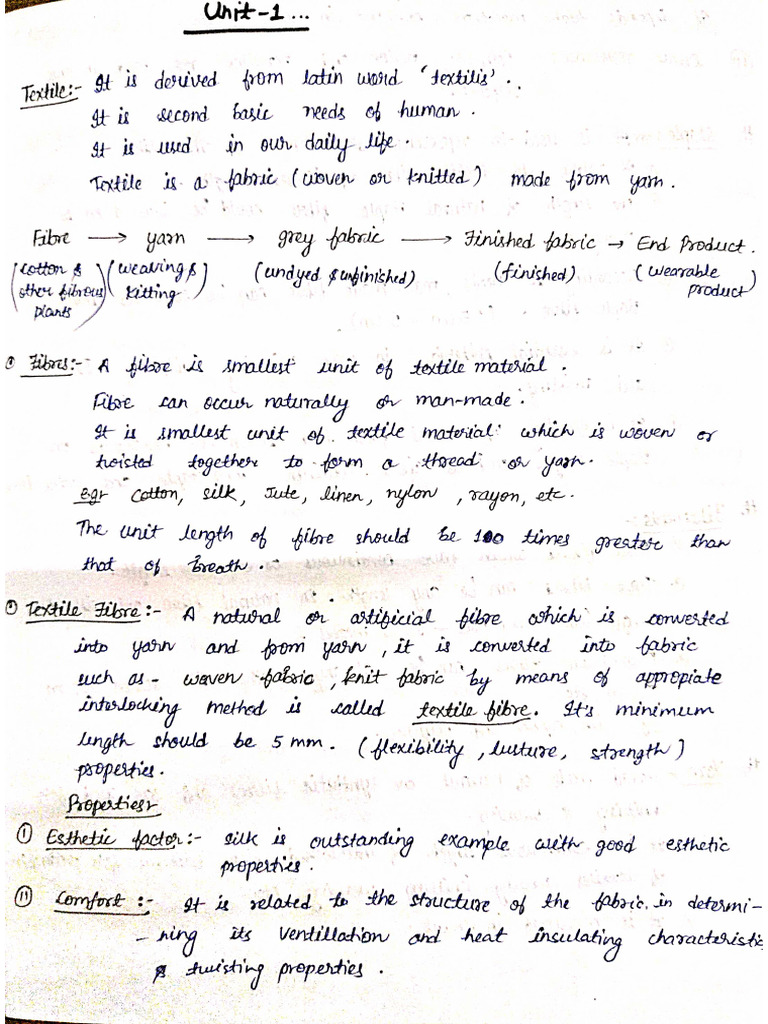 Unit-1...
Textile:- It is derived from latin word 'textilis'.
It is second basic needs of human.
It is used in our daily life.
Textile is a fabric (woven or knitted) made from yarn.
Fibre → yarn → grey fabric → Finished fabric → End Product.
(cotton & other fibrous plants) (weaving & kitting) (undyed & unfinished) (finished) (wearable product)
① Fibres:- A fibre is smallest unit of textile material.
Fibre can occur naturally or man-made.
It is smallest unit of textile material which is woven or
twisted together to form a thread or yarn.
eg:- Cotton, silk, Jute, linen, nylon, rayon, etc.
The unit length of fibre should be 100 times greater than
that of Breath.
① Textile Fibre:- A natural or artificial fibre which is converted
into yarn and from yarn, it is converted into fabric
such as - woven fabric, knit fabric by means of appropiate
interlocking method is called textile fibre. It's minimum
length should be 5 mm. (flexibility, lusture, strength)
properties.
Properties:-
① Esthetic factor:- silk is outstanding example with good esthetic
properties.
② Comfort:- It is related to the structure of the fabric in determi-
-ning its ventillation and heat insulating characteristic
& twisting properties.